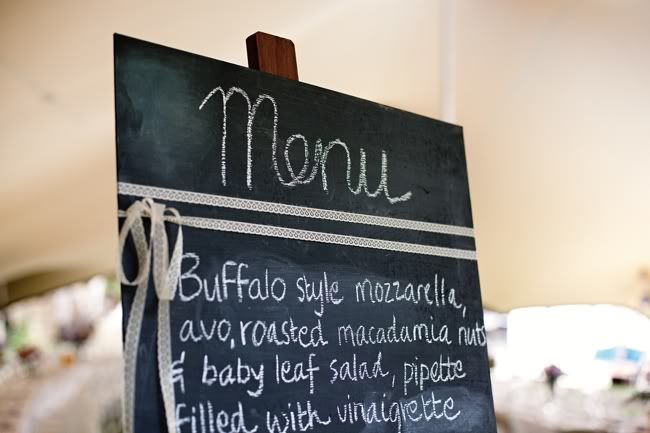 Menu
Buffalo style mozzarella,
avo, roasted macadamia nuts
& baby leaf salad, pipette
filled with vinaigrette